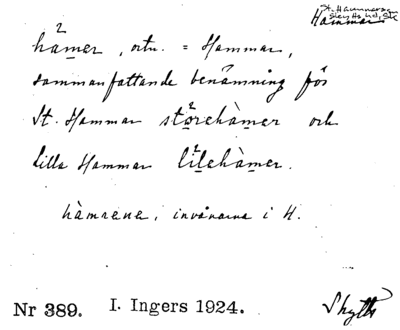 St. Hammarsn
Skytts hd, Sk
Hammar
hàmer, ortn. = Hammar,
sammanfattande benämning för
St. Hammar störehàmer och
Lilla Hammar lilehàmer.
hàmrene, invånarna i H.
Nr 389. I. Ingers 1924. Skytts